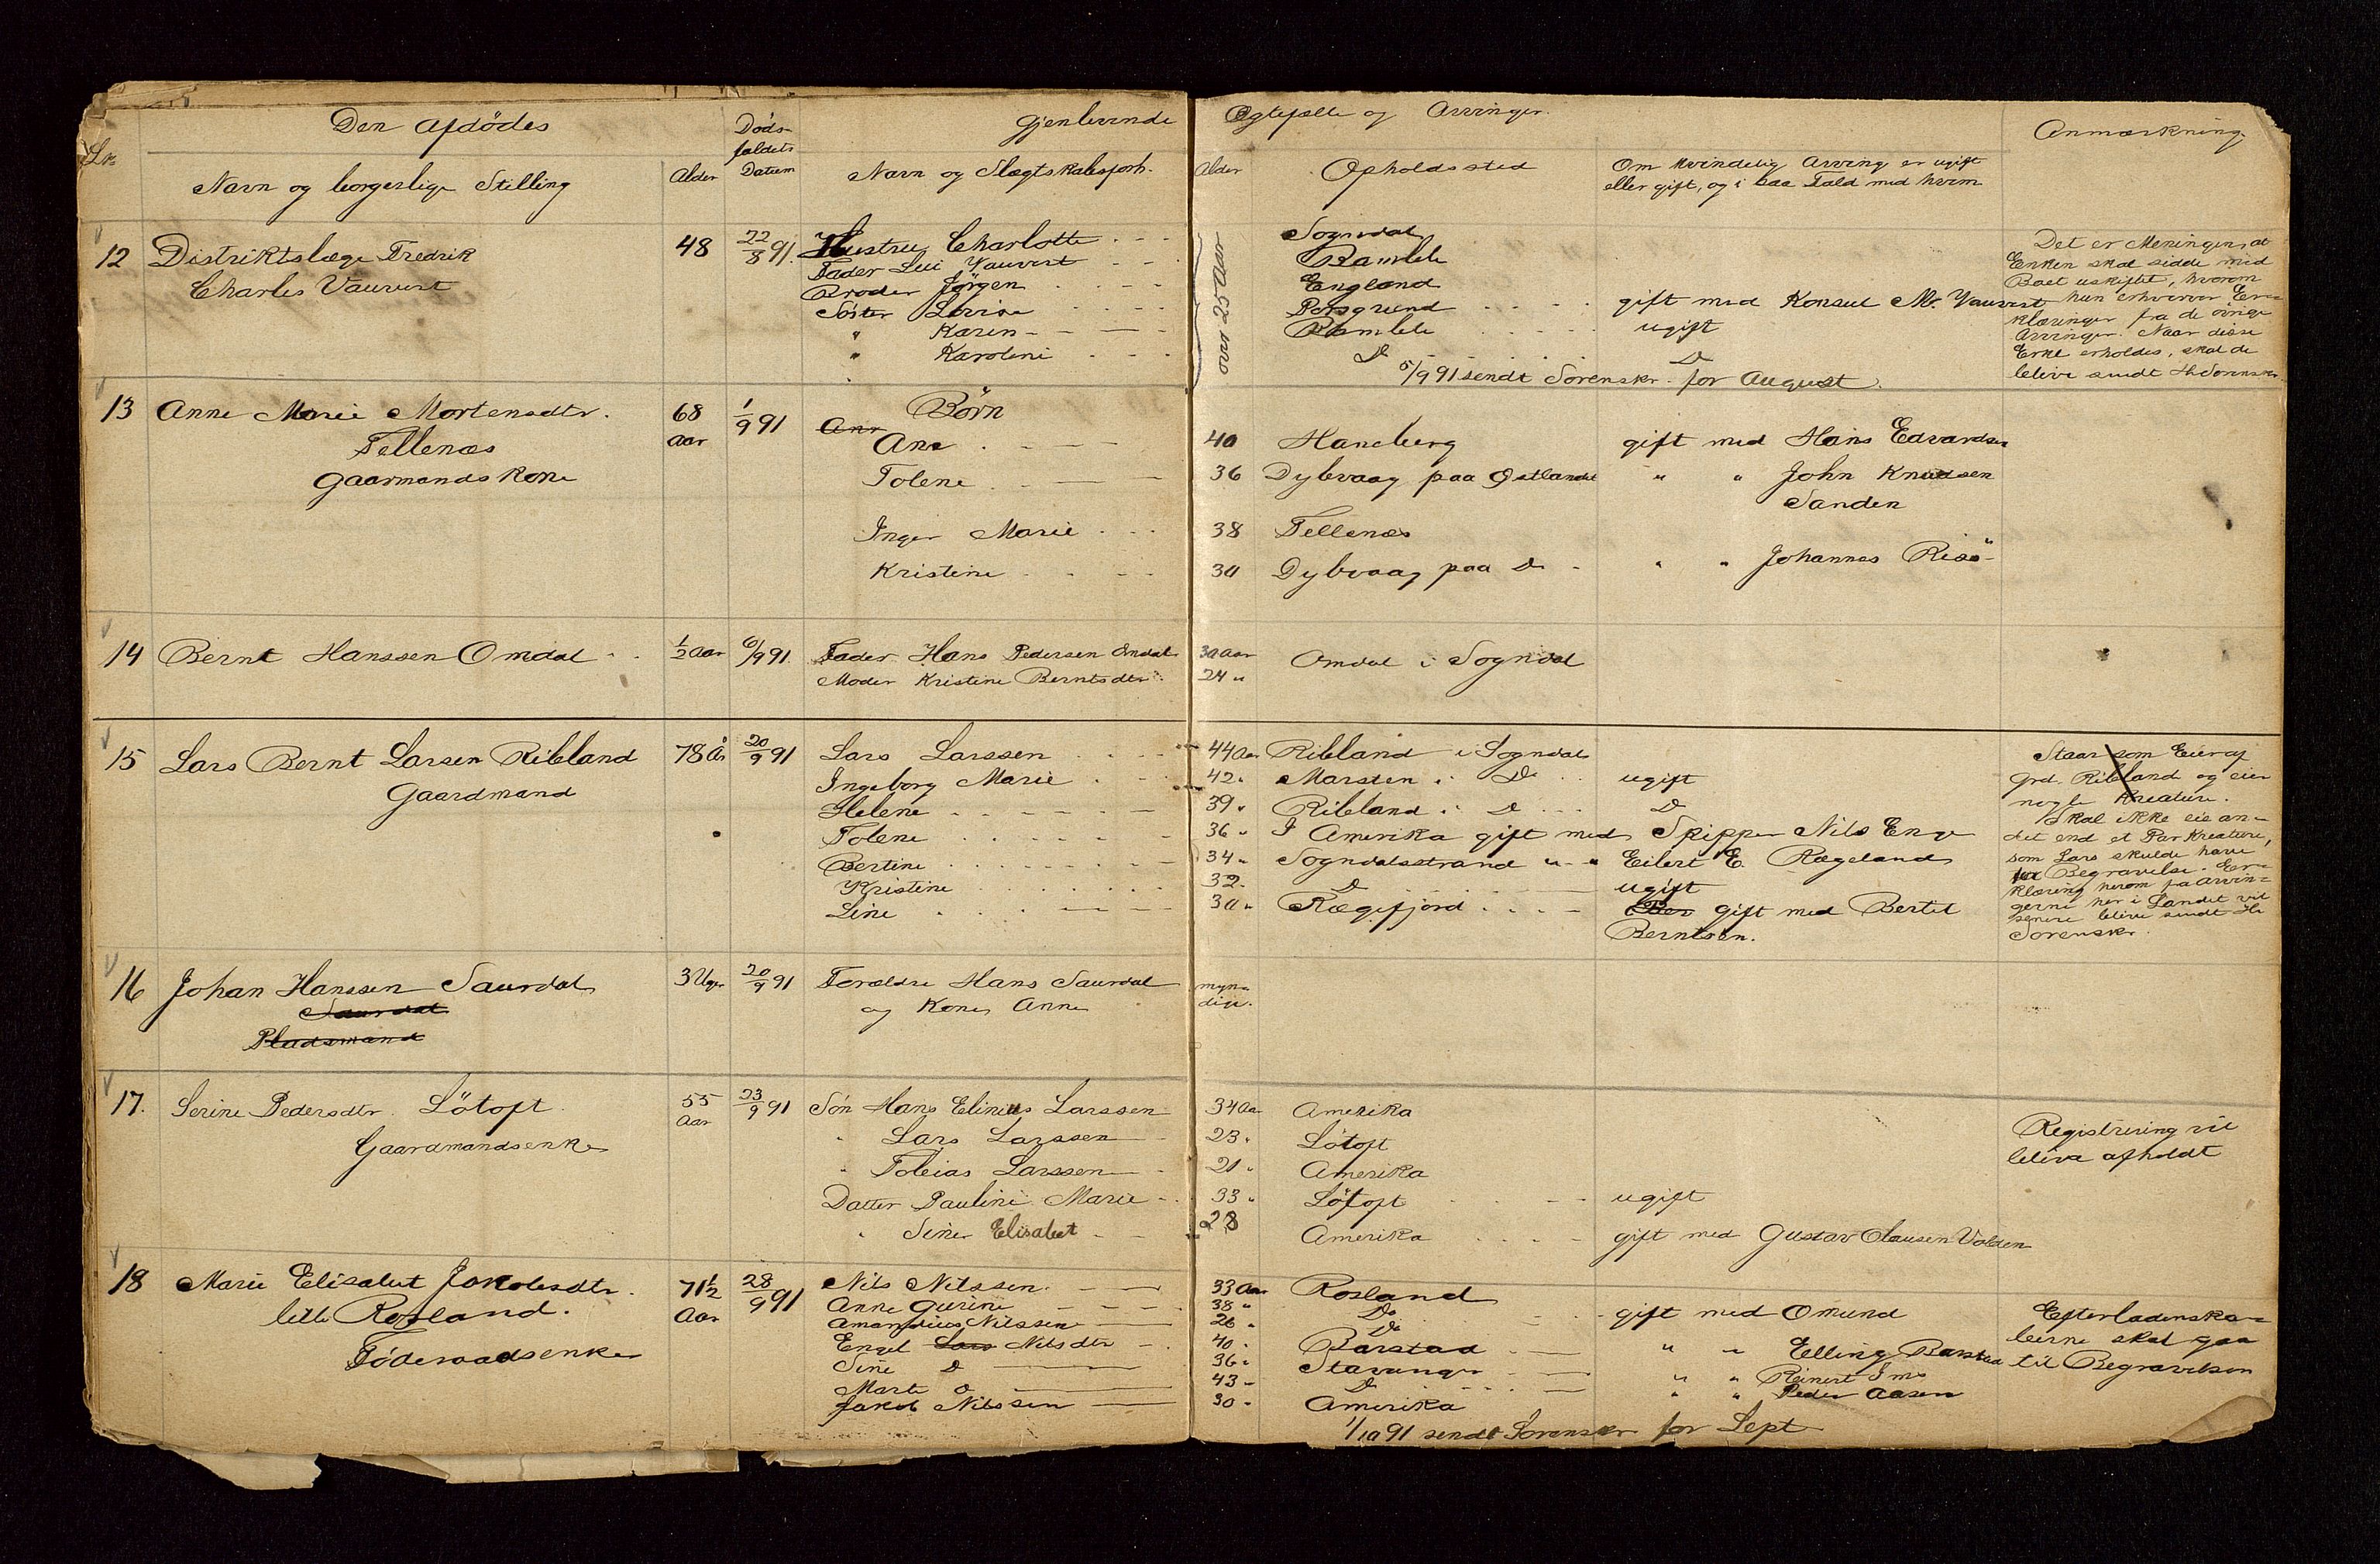 Den Afdödes Döds- Gjenlevende Egtefælle og Arvinger. Anmærkning.
Lr. faldets
Navn og borgerlige Stilling Alder Datum Navn og Slægtskabsforh. Alder Opholdssted Om kvindelig Arving er ugift
eller gift, og i saa Fald med hvem
12 Distriktslæge Fredrik 48 22/8 91. Hustru Charlotte over 25 Aar Sogndal Det er Meningen, at
Charles Vauvert Fader Vauvert Bamble Enken skal sidde med
Broder Jörgen England Boet uskiftet, hvorom
Söster Lovise Porsgrund gift med Konsul M. Vauvert hun erhverver Er=
" Karen Bamble ugift klæringer fra de övrige
" Karoline Do Do Arvinger. Naar disse
Erkl erholdes, skal de
5/9 91 sendt Sorenskr. for August. blive sendt Hr Sorenskr.
13 Anne Marie Mortensdtr. 68 1/9 91 Börn
Aar Ane 40 Haneberg gift med Hans Edvardsen
Fellenæs Tolene 36 Dybvaag paa Östlandet " " John Knudsen
Gaarmandskone Sanden
Inger Marie 38 Fellenæs
Kristine 30 Dybvaag paa Do " " Johannes Risö
14 Bernt Hanssen Omdal 1/2 Aar 6/9 91. Fader Hans Pedersen Omdal 30 Aar Omdal i Sogndal
Moder Kristine Berntsdtr. 24 "
15 Lars Bernt Larsen Ribland 78 År 20/9 91 Lars Larssen 44 Aar Ribland i Sogndal Staar som Eier af
Gaardmand Ingeborg Marie 42 " Marsten i Do ugift Grd. Ribland og eier
Helene 39 " Ribland i Do Do nogle Kreature.
Tolene 36 " I Amerika gift med Skipper Nils Enge Skal ikke eie an=
Bertine 34 " Sogndalsstrand " " Eilert E. Rægeland det end et Par Kreature,
Kristine 32 " Do ugift som Lars skulde have
Line 30 " Rægefjord gift med Bertel for Begravelse. Er=
Berntsen. klæring herom fra Arvin=
gerne her i Landet vil
senere blive sendt Hr
Sorenskr.
16 Johan Hanssen Saurdal 3 Uger 20/9 91 Forældre Hans Saurdal myn=
Saurdal og Kone Anne dige.
Pladsmand
17. Serine Pedersdtr. Lötoft 55 23/9 91 Sön Hans Elinius Larssen 34 Aar Amerika
Gaardmandsenke Aar " Lars Larssen 23 " Lötoft Registrering vil
" Tobias Larssen 21 " Amerika blive afholdt
Datter Pauline Marie 33 " Lötoft ugift
" Sine Elisabet 28 Amerika gift med Gustav Olausen Valden
18 Marie Elisabet Jakobsdtr. 71 1/2 28/9 91 Nils Nilssen 33 Aar Rosland
lille Rosland. Aar Anne Gurine 38 " Do gift med Omund Efterladenska=
Föderaadsenke Amandius Nilssen 26 " Do
Engel Nilsdtr 40 " Barstad " " Elling Barstad berne skal gaa
Sine Do 36 " Stavanger " " Reinert til Begravelsen
Marte Do 43 " Do " " Peder Aasen
Jakob Nilssen 30 " Amerika
1/10 91 sendt Sorenskr for Sept